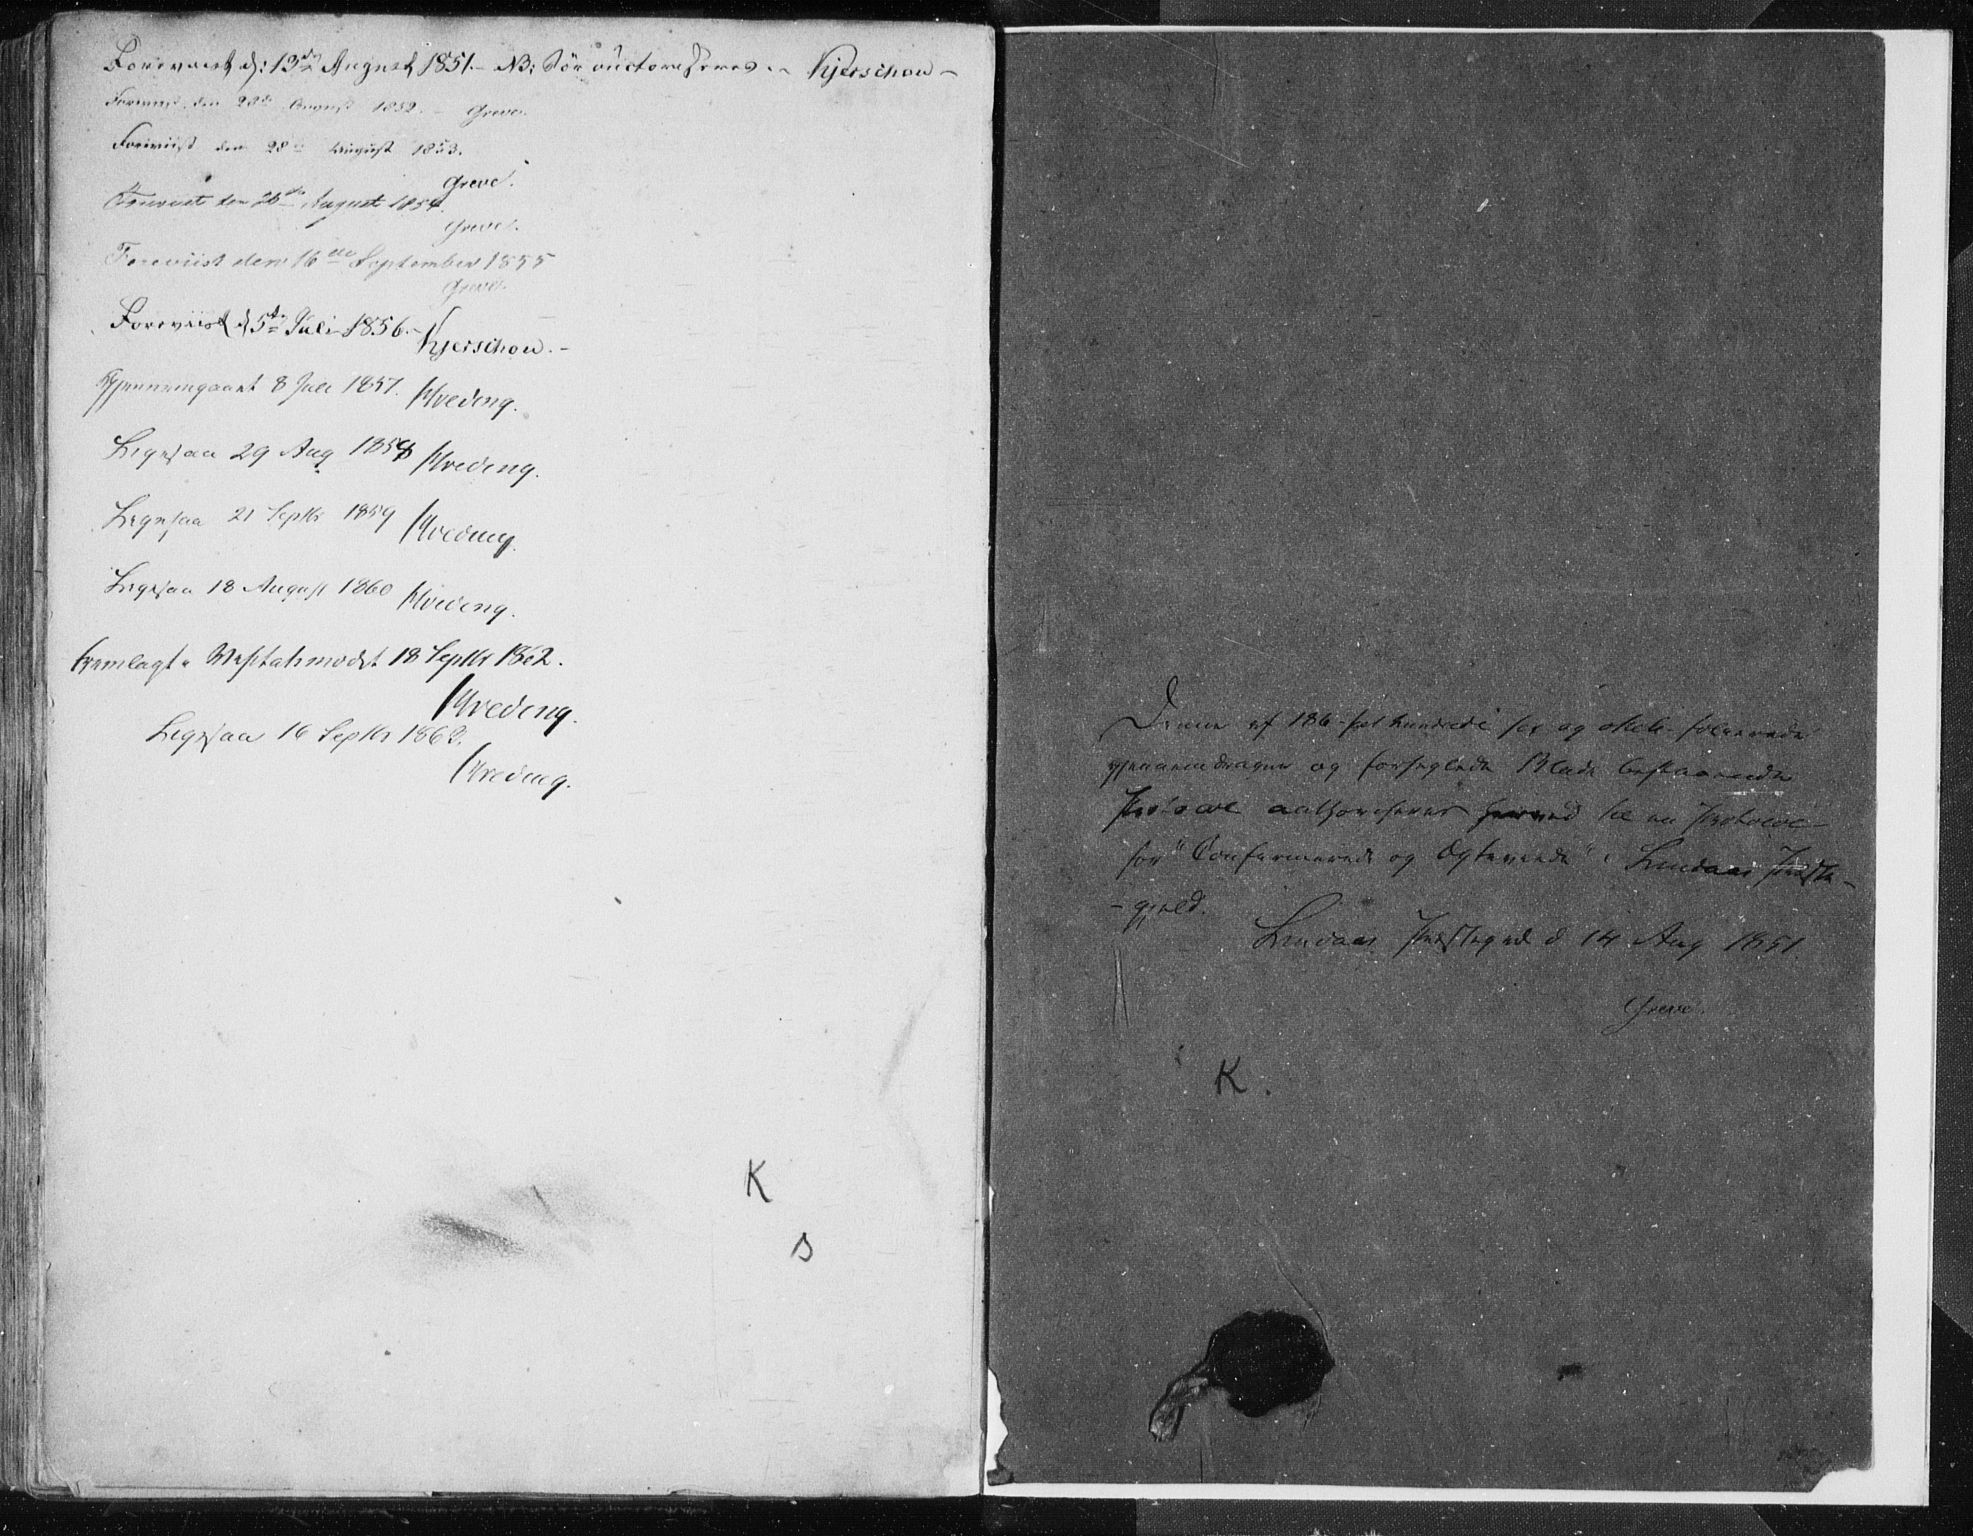 Foreviist d: 13de August 1851. – NB: bör auctoriseres. – Kjerschow –
Foreviist den 28de August 1852. – Greve.
Foreviist den 28de August 1853.
Greve.
Foreviist den 26de August 1854.
Greve.
Foreviist den 16de September 1855
Greve.
Foreviist d 5te Juli 1856. –
Kjerschow. –
Gjennemgaaet 8 Juli 1857. Hveding.
Ligesaa 29 Aug 1858 Hveding.
Ligesaa 21 Septbr 1859 Hveding.
Ligesaa 18 August 1860 Hveding.
Fremlagt 18 Septbr 1862.
Hveding.
Ligesaa 16 Septbr 1862.
Hveding.
K
Denne af 186 – et hundrede sex og otteti – folierede
gjennemdragne og forseglede Blade bestaaende
Protocol authoriseres herved til en Protocol
for "Confirmerede og Egteviede" i Lindaas Præste-
-gjeld.
Lindaas Præstegrd d 14 Aug 1851.
Greve.
K.